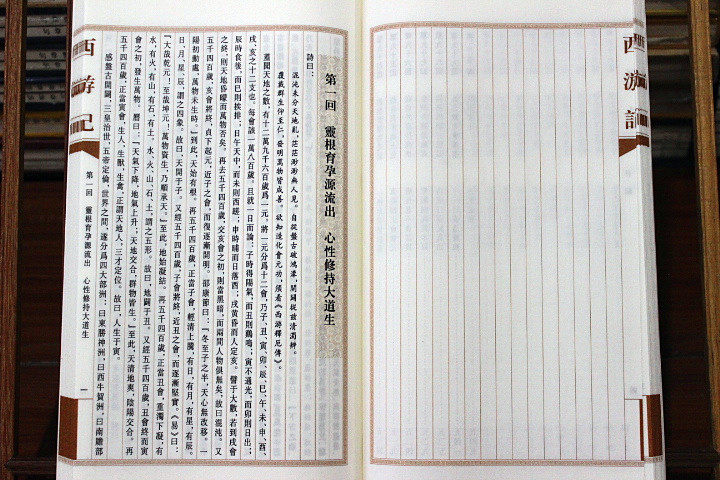 西游記
第一回 靈根育孕源流出 心性修持大道生
詩曰：
混沌未分天地亂，茫茫渺渺無人見。自從盤古破鴻濛，開闢從茲清濁辨。
覆載群生仰至仁，發明萬物皆成善。欲知造化會元功，須看《西游釋厄傳》。
蓋聞天地之數，有十二萬九千六百歲爲一元。將一元分爲十二會，乃子、丑、寅、卯、辰、巳、午、未、申、酉、
戌、亥之十二支也。每會該一萬八百歲。且就一日而論：子時得陽氣，而丑則鷄鳴；寅不通光，而卯則日出；
辰時食後，而巳則挨排；日午天中，而未則西蹉；申時晡而日落酉，戌黄昏而人定亥。譬于大數，若到戌會
之終，則天地昏曚而萬物否矣。再去五千四百歲，交亥會之初，則當黑暗，而兩間人物俱無矣，故曰混沌。又
五千四百歲，亥會將終，貞下起元，近子之會，而復逐漸開明。邵康節曰：「冬至子之半，天心無改移。一
陽初動處，萬物未生時。」到此，天始有根。再五千四百歲，正當子會，輕清上騰，有日，有月，有星，有辰。
日、月、星、辰，謂之四象。故曰，天開于子。又經五千四百歲，子會將終，近丑之會，而逐漸堅實。《易》曰：
「大哉乾元！至哉坤元！萬物資生，乃順承天。」至此，地始凝結。再五千四百歲，正當丑會，重濁下凝，有
水，有火，有山，有石，有土。水、火、山、石、土，謂之五形。故曰，地闢于丑。又經五千四百歲，丑會終而寅
會之初，發生萬物。曆曰：「天氣下降，地氣上升；天地交合，群物皆生。」至此，天清地爽，陰陽交合。再
五千四百歲，正當寅會，生人，生獸，生禽，正謂天地人，三才定位。故曰，人生于寅。
感盤古開闢，三皇治世，五帝定倫，世界之間，遂分爲四大部洲：曰東勝神洲，曰西牛賀洲，曰南贍部
西游記
第一回 靈根育孕源流出 心性修持大道生
一